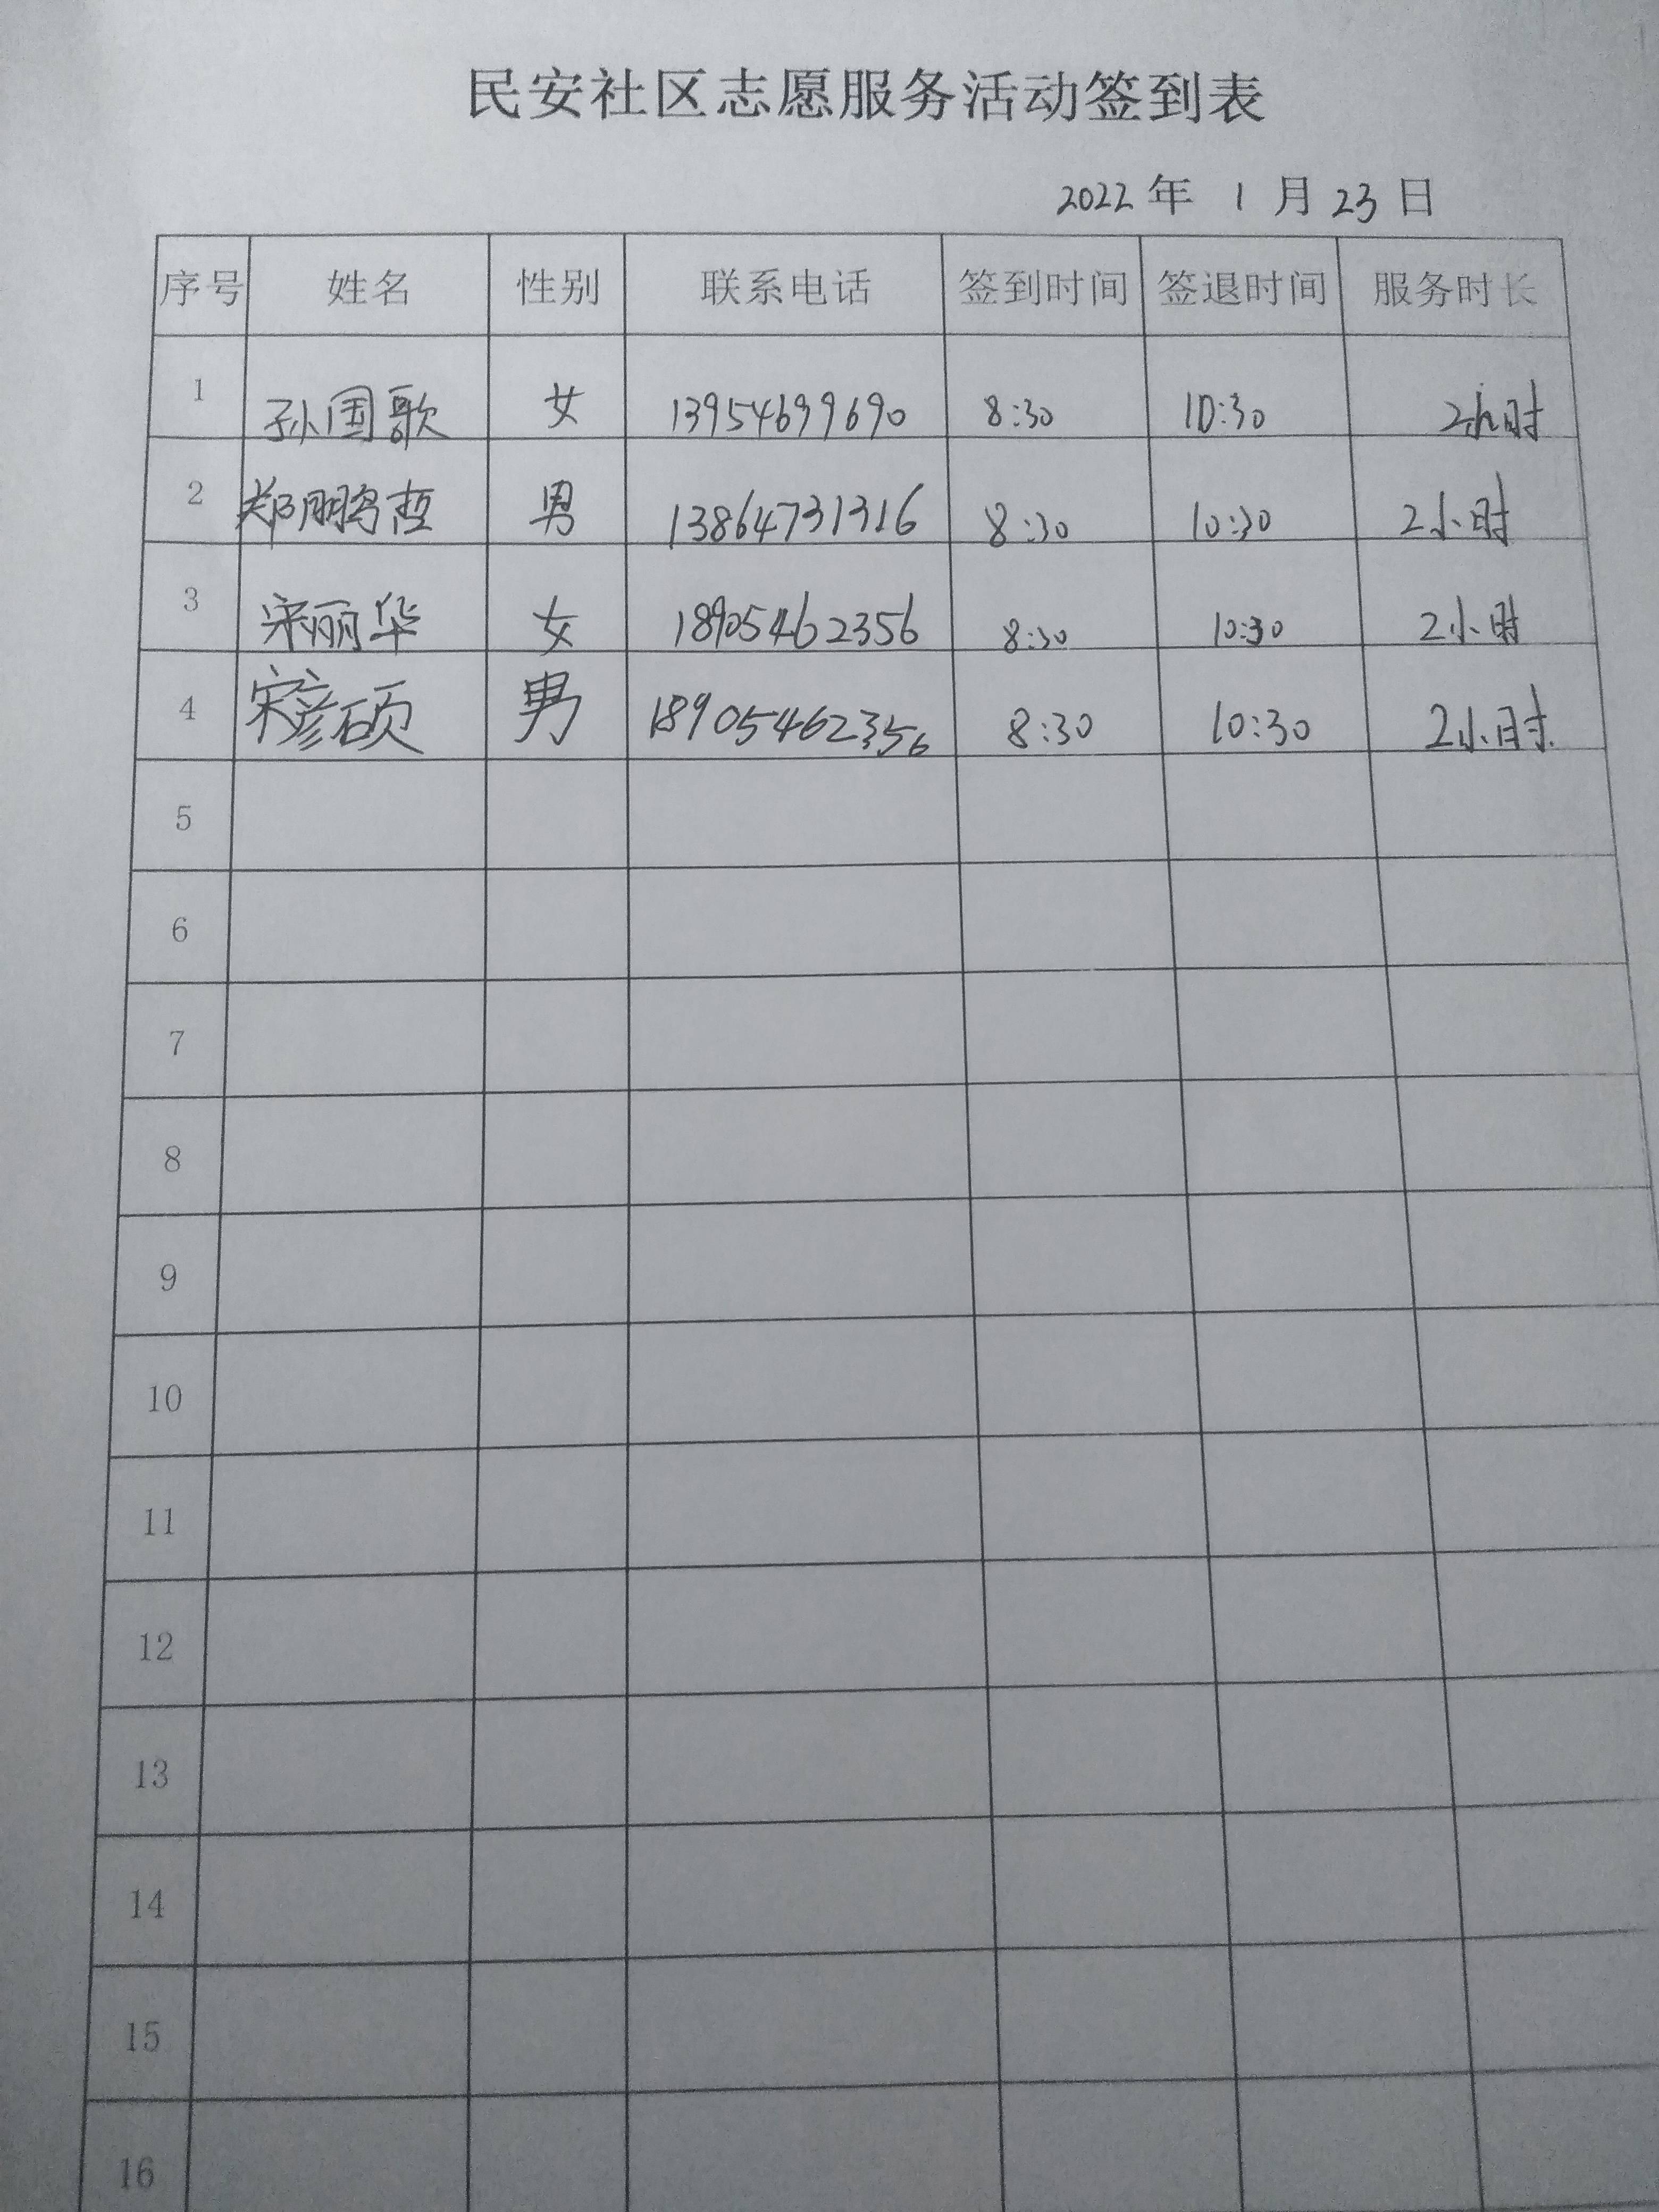 民安社区志愿服务活动签到表
2022年 1月23日
序号 姓名 性别 联系电话 签到时间 签退时间 服务时长
1 孙国歌 女 13954699690 8:30 10:30 2小时
2 郑鹏哲 男 13864731316 8:30 10:30 2小时
3 宋丽华 女 18905462356 8:30 10:30 2小时
4 宋彦硕 男 18905462356 8:30 10:30 2小时.
5
6
7
8
9
10
11
12
13
14
15
16